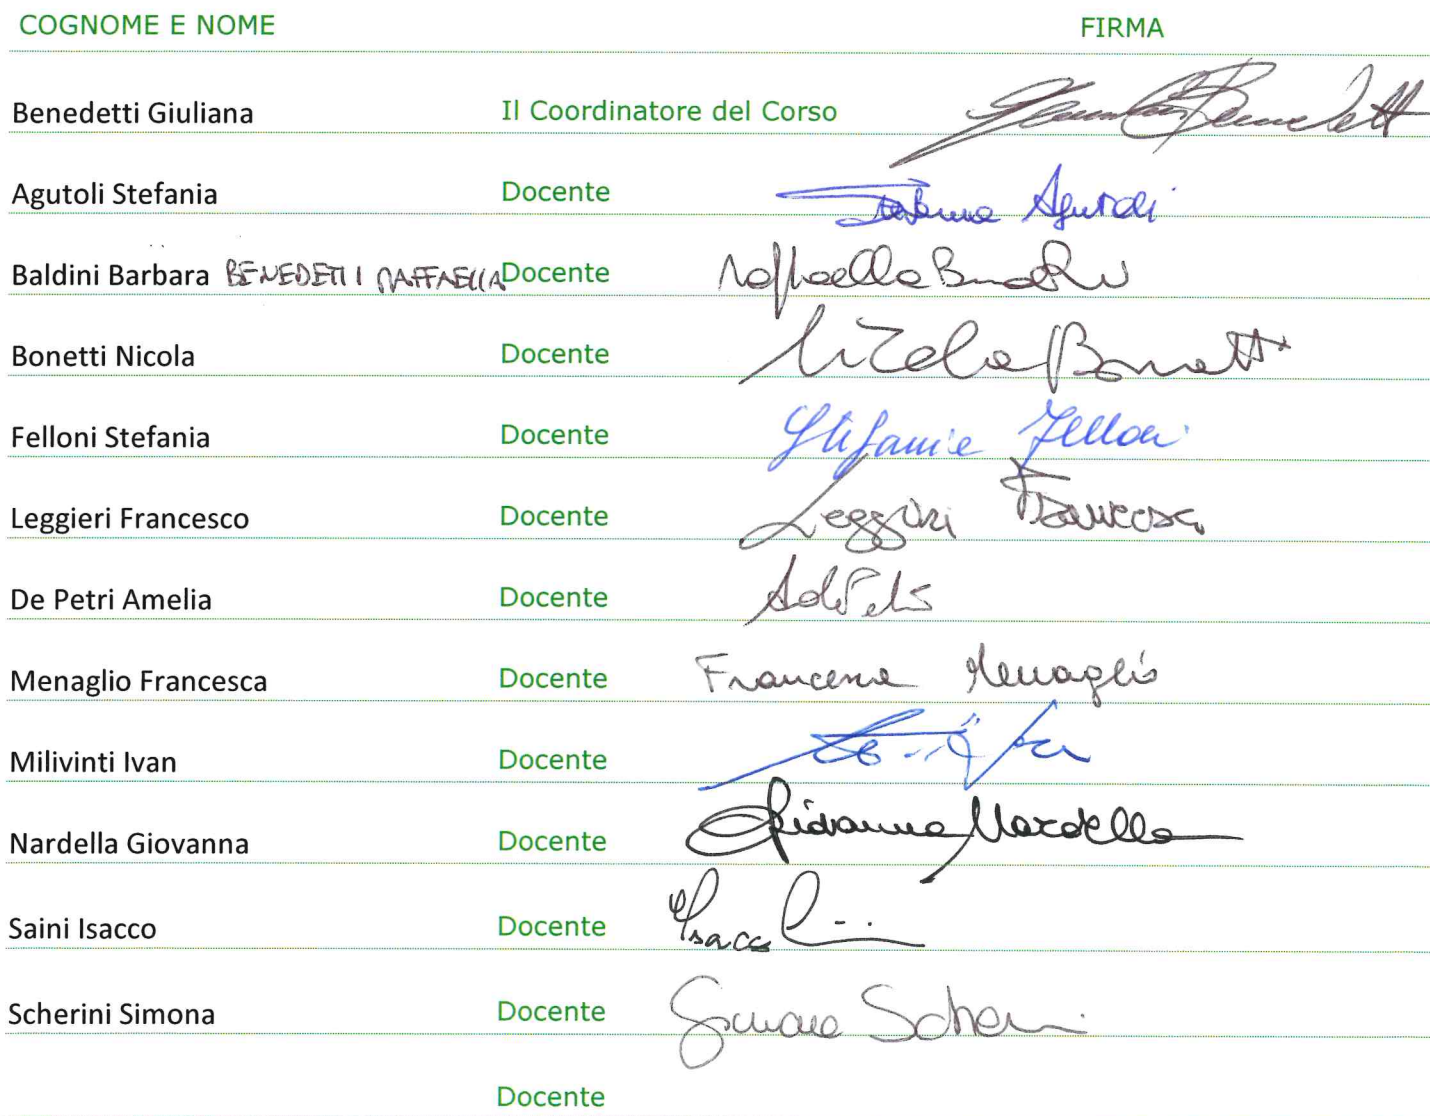 COGNOME E NOME FIRMA
Benedetti Giuliana Il Coordinatore del Corso
Agutoli Stefania Docente Stefania Agutoli
Baldini Barbara BENEDETTI RAFFAELLA Docente Raffaella
Bonetti Nicola Docente Nicola Bonetti
Felloni Stefania Docente Stefania Felloni
Leggieri Francesco Docente Leggieri Francesco
De Petri Amelia Docente
Menaglio Francesca Docente Francesca Menaglio
Milivinti Ivan Docente
Nardella Giovanna Docente Giovanna Nardella
Saini Isacco Docente Isacco
Scherini Simona Docente Simona Scherini
Docente